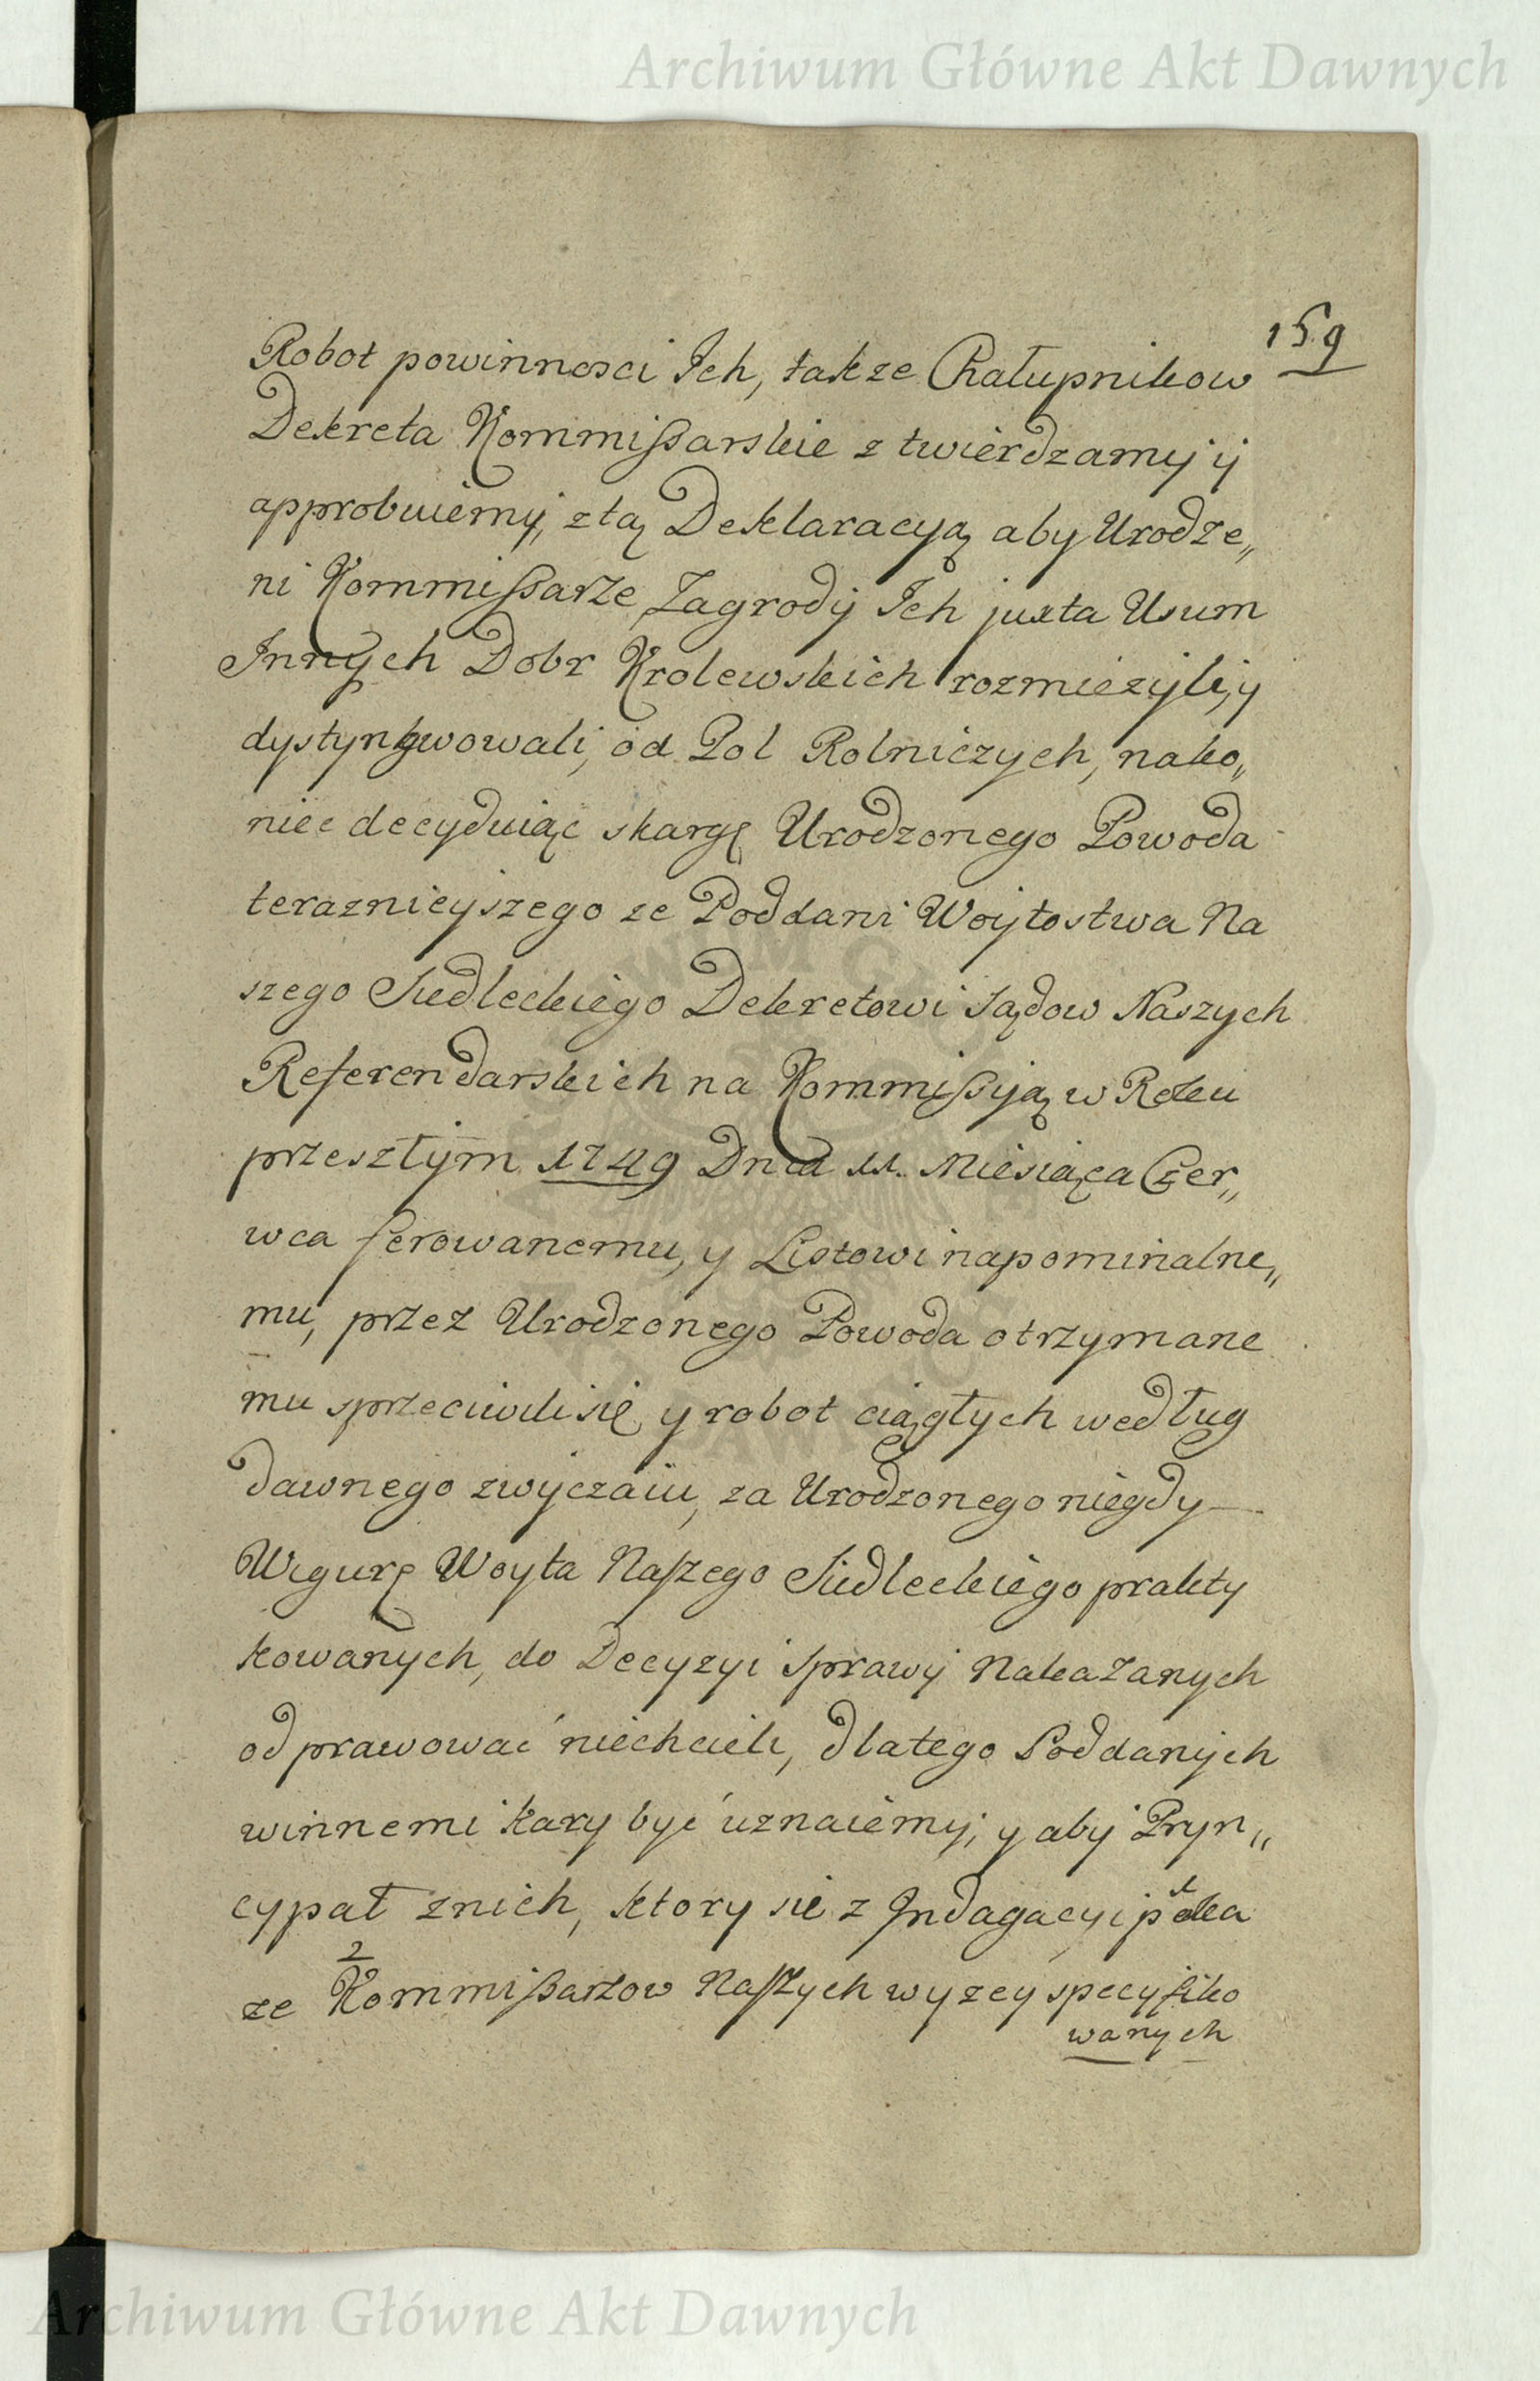 Archiwum Główne Akt Dawnych
159
Robot powinnosci Ich, takze Chałupnikow
Dekreta Kommissarskie ztwierdzamy y
approbuiemy, z tą Deklaracyą aby Urodze„
ni Kommissarze Zagrody Ich juxta Usum
Innych Dobr Krolewskich rozmierzyli, y
dystyngwowali, od Pol Rolniczych, nako„
niec decyduiąc skargę Urodzonego Powoda
terazniejszego ze Poddani Woytostwa Na
szego Siedleckiego Dekretowi Sądow Naszych
Referendarskich na Kommissyją w Roku
przeszłym 1749 Dnia 11. Miesiąca Czer„
wca ferowanemu, y Listowi napominalne„
mu, przez Urodzonego Powoda otrzymane
mu sprzeciwili się, y robot ciągłych według
dawnego zwyczaiu, za Urodzonego niegdy
Wigurę Woyta Naszego Siedleckiego prakty
kowanych, do Decyzyi sprawy Nakazanych
odprawować niechcieli, dlatego Poddanych
winnemi kary być uznaiemy, y aby Pryn„
cypał znich, ktory sie z Indagacyi pokа
że 2 Kommissarzow Naszych wyzey specyfiko
wanych
Archiwum Główne Akt Dawnych